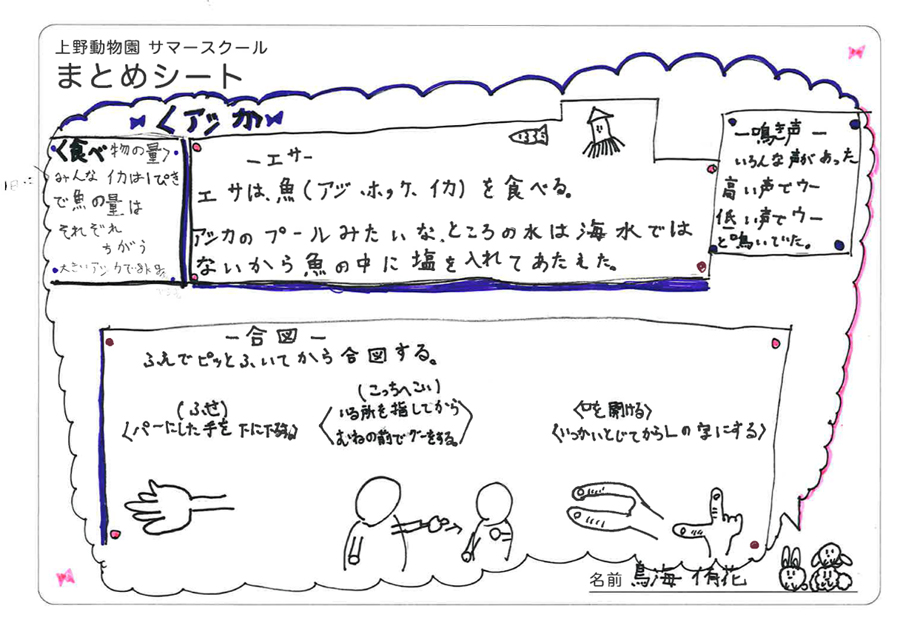 上野動物園 サマースクール
まとめシート
くアシカ
〈食べ物の量〉
みんな イカは1ぴき
で魚の量は
それぞれ
ちがう
ーエサー
エサは、魚(アジ、ホッケ、イカ)を食べる。
アシカのプールみたいな、ところの水は海水では
ないから魚の中に塩を入れてあたえた。
ー鳴き声ー
いろんな声があった
高い声でウー
低い声でウー
と鳴いでた。
ー合図ー
ふえでピッとふいてから合図する。
(ふせ)
〈パーにした手を下に下げる。〉
(こっちへこい)
〈いる所を指してから
むねの前でグーをする。〉
〈口を開ける〉
〈いっかいとじてからLの字にする〉
名前 鳥海